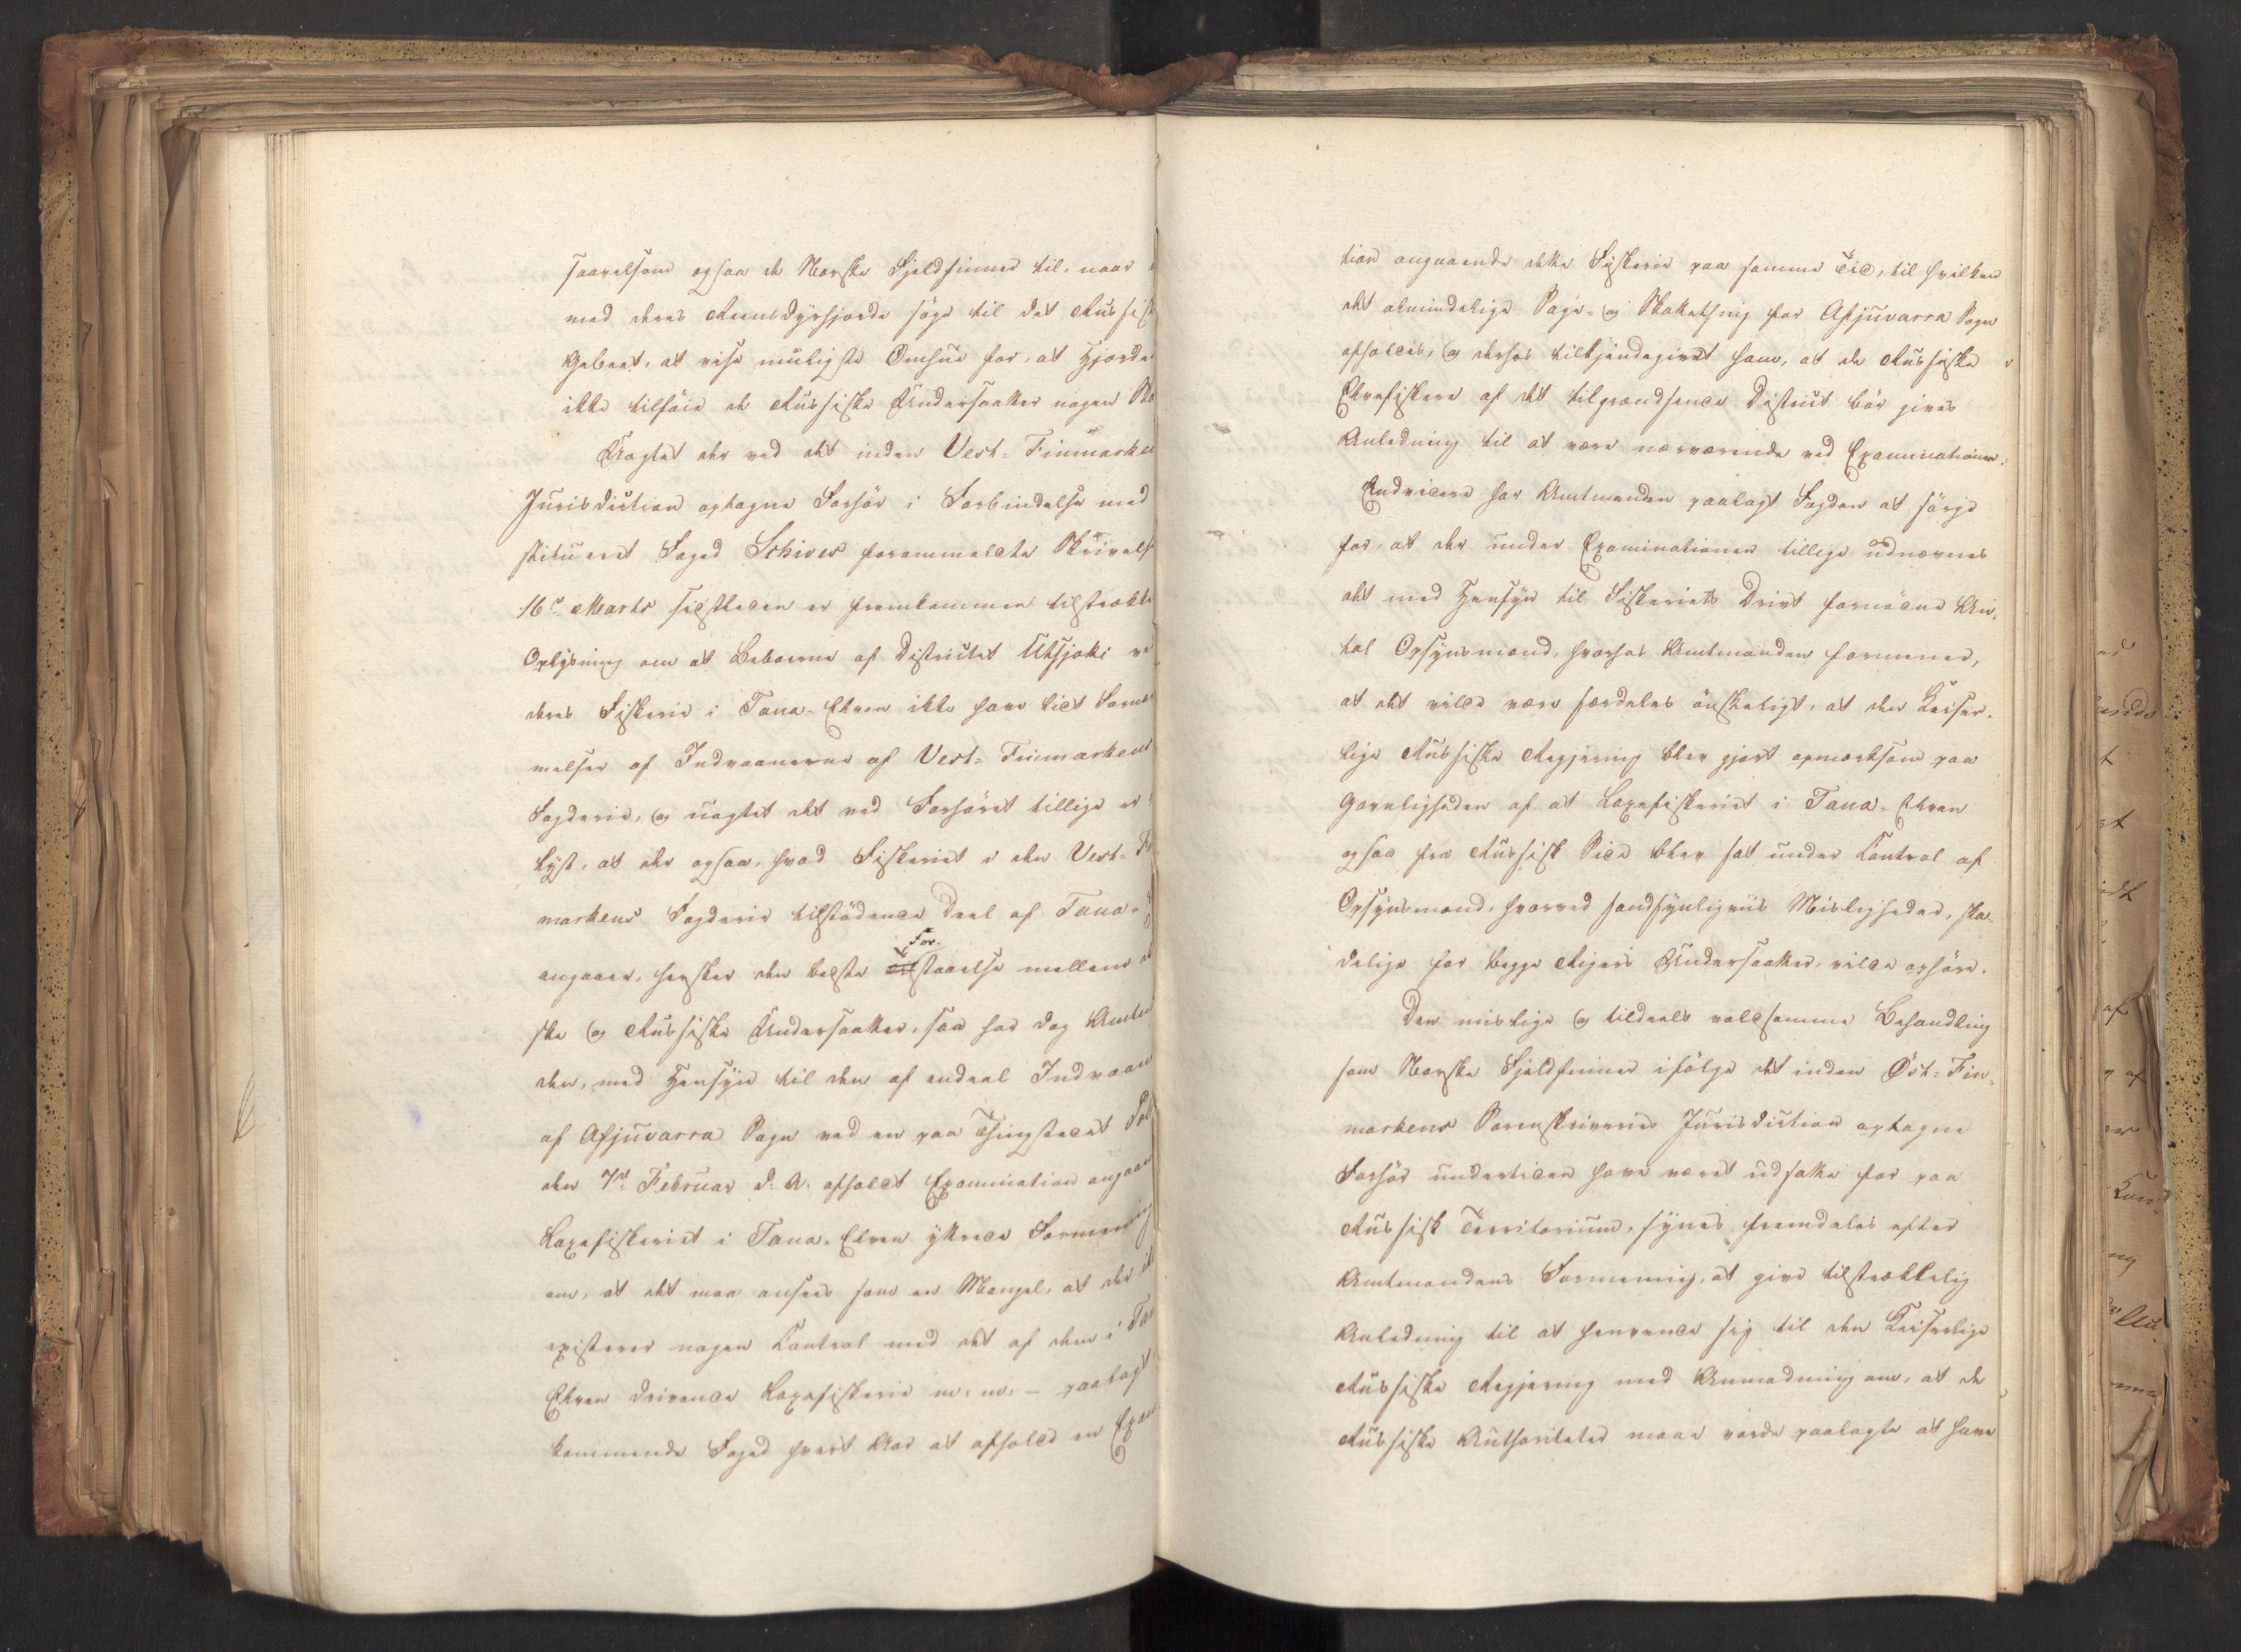 saavelsom ogsaa de Norske Fjeldfinner til, naar
med deres Reensdyrhjorde søge til det Russisk
Gebeet, at vise muligste Omhue for, at Hjorde
ikke tilføie de Russiske Undersaatter nogen Ska
Uagtet der ved det inden Vest-Finmarke
Jurisdiction optagne Forhør i Forbindelse med
stitueret Foged Schives foranmeldte Skrivels
16de Marts sidstleden er fremkommen tilstrække
Oplysning om at Beboerne af Districtet Utsjoki ve
deres Fiskerie i Tana-Elven ikke have lidt Forur
melser af Indvaanerne af Vest-Finmarkens
Fogderie, og uagtet det ved Forhøret tillige er
lyst, at der ogsaa, hvad Fiskeriet i den Vest-Fi
markens Fogderie tilstødende Deel af Tana-
angaaer, hersker den bedste Forstaaelse mellem
ske og Russiske Undersaatter, saa har dog Amtm
den, med Hensyn til den af endeel Indvaan
af Afjuvarra Sogn ved en paa Thingstedet Pol
den 7de Februar d. A. afholdt Examination angaae
Laxefiskeriet i Tana-Elven yttrede Formening
om, at det maa ansees som en Mangel, at der ik
existerer nogen Control med det af dem i Tan
Elven drivende Laxefiskerie m. m. – paalagt
kommende Foged hvert Aar at afholde en Exam
tion angaaende dette Fiskerie paa samme Tid, til hvilken
det almindelige Sage- og Skattething for Afjuvarra Sogn
afholdes, og derhos tilkjendegivet ham, at de Russiske
Elvefiskere af det tilgrændsende District bør gives
Anledning til at være nærværende ved Examinationen.
Endvidere har Amtmanden paalagt Fogden at sørge
for, at der under Examinationen tillige udnævnes
det med Hensyn til Fiskeriets Drivt fornødne An-
tal Opsynsmænd, hvorhos Amtmanden formener,
at det vilde være særdeles ønskeligt, at den Keiser-
lige Russiske Regjering blev gjort opmærksom paa
Gavnligheden af at Laxefiskeriet i Tana-Elven
ogsaa fra Russisk Side blev sat under Control af
Opsynsmænd, hvorved sandsynligviis Misligheder, ska-
delige for begge Rigers Undersaatter, vilde ophøre.
Den mislige og tildeels voldsomme Behandling
som Norske Fjeldfinner ifølge det inden Øst-Fin-
markens Sorenskriveries Jurisdiction optagne
Forhør undertiden have været udsatte for paa
Russisk Territorium, synes fremdeles efter
Amtmandens Formening, at give tilstrækkelig
Anledning til at henvende sig til den Keiserlige
Russiske Regjering med Anmodning om, at de
Russiske Authoriteter maae vorde paalagte at have